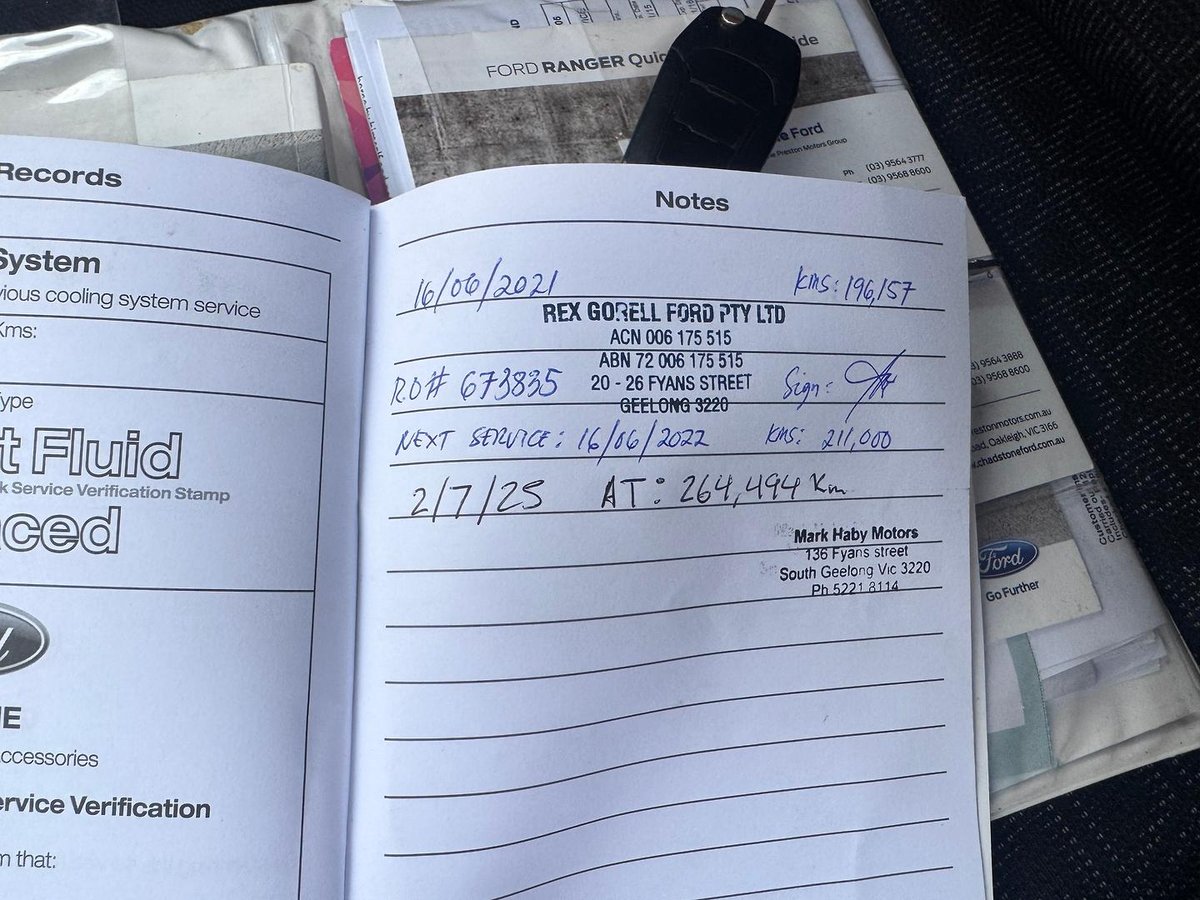 Records
System
vious cooling system service
Kms:
Type
t Fluid
k Service Verification Stamp
ced
E
ccessories
ervice Verification
m that:
FORD RANGER Quic
ide
e Ford
e Preston Motors Group
Ph (03) 9564 3777
(03) 9568 8600
Notes
16/06/2021 KMS: 196,157
REX GORELL FORD PTY LTD
ACN 006 175 515
ABN 72 006 175 515
R.O# 673835 20 - 26 FYANS STREET Sign:
GEELONG 3220
NEXT SERVICE: 16/06/2022 KMS: 211,000
2/7/25 AT: 264,494 Km
Mark Haby Motors
136 Fyans street
South Geelong Vic 3220
Ph 5221 8114
3) 9564 3888
03) 9568 8600
estonmotors.com.au
ad, Oakleigh, VIC 3166
w.chadstoneford.com.au
Ford
Go Further